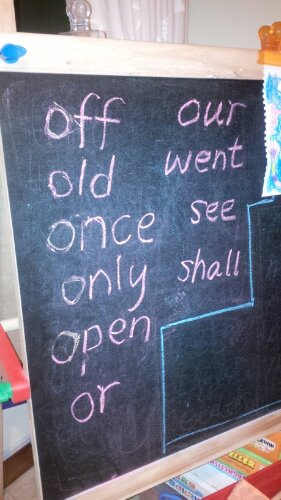 off
old
once
only
open
or
our
went
see
shall